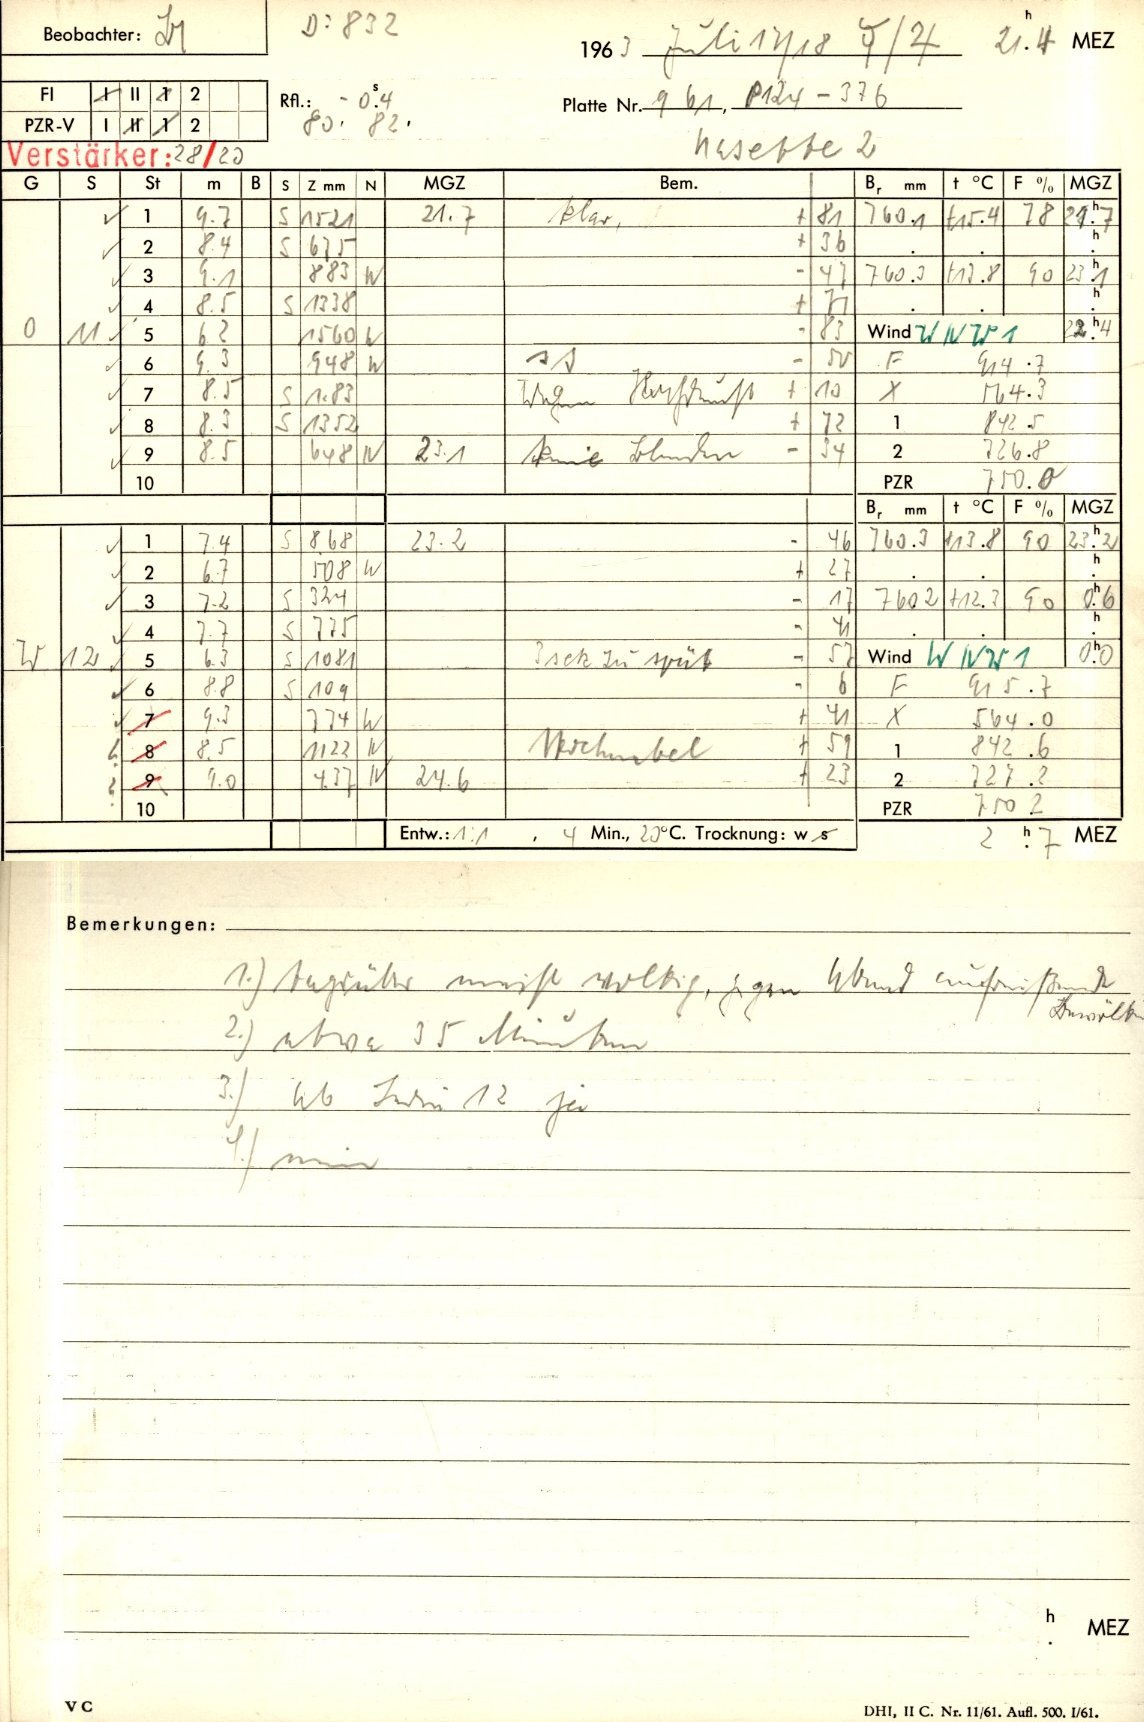 Beobachter:
D: 832
1963 Juli 17/18 21.4 h MEZ
FI I II 1 2
PZR-V I II 1 2
Rfl.: - 0.s4
80. 82.
Platte Nr. 961, P124 - 376
Kasette 2
Verstärker: 28/20
G S St m B S Z mm N MGZ Bem. Br mm t °C F % MGZ
1 9.7 S 1521 21.7 klar, + 81 760.1 +15.4 78 21.h7
2 8.4 S 675 + 36 . . h
3 9.1 883 N - 47 760.3 +13.8 90 23.h1
4 8.5 S 1338 + 71 . . h
O 11 5 6.2 1560 N - 83 Wind WNW 1 22.h4
6 9.3 948 N - 50 F 914.7
7 8.5 S 183 Wegen + 10 X 564.3
8 8.3 S 1352 + 72 1 842.5
9 8.5 648 N 23.1 keine Blenden - 34 2 726.8
10 PZR 750.0
Br mm t °C F % MGZ
1 7.4 S 868 23.2 - 46 760.3 +13.8 90 23.h2
2 6.7 508 N + 27 . . h
3 7.2 S 324 - 17 760.2 +12.3 90 0.h6
4 7.7 S 775 - 41 . . h
W 12 5 6.3 S 1081 3 sek zu spät - 57 Wind WNW 1 0.h0
6 8.8 S 109 - 6 F 915.7
7 9.3 774 N + 41 X 564.0
8 8.5 1122 N Hochnebel + 59 1 842.6
9 9.0 437 N 24.6 + 23 2 727.2
10 PZR 750.2
Entw.: 1:1 , 4 Min., 20°C. Trocknung: w s 2 h.7 MEZ
Bemerkungen:
1.) tagsüber meist wolkig, gegen Abend aufreißende
2.) etwa 35 Minuten
3.) ab Serie 12 ja
4.) nein
h. MEZ
V C DHI, II C. Nr. 11/61. Aufl. 500. I/61.